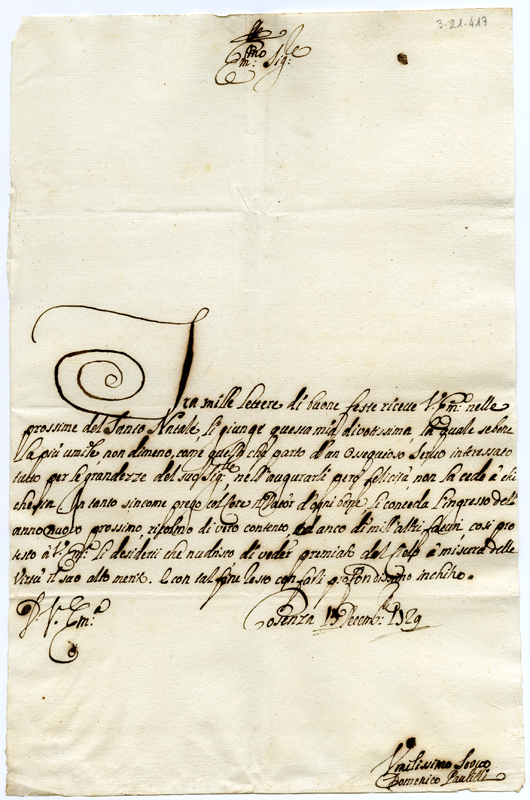 3-21-417
Em:mo Sig:re
Tra mille lettere di buone feste riceve V. Em:a nelle
prossime del Santo Natale li giunge questa mia divotissima, la quale sebene
la più umile non dimeno, come quella che parto d'un ossequioso Servo interessato
tutto per le grandezze del suo Sig:re nell'augurarli però felicità non la cede à chi
che sia. In tanto sincome prego col core il Dator d'ogni bene li conceda l'ingresso dell'
anno nuovo prossimo ripieno di vero contento ed anco di mill'altri così pro
testo à V. Em:a li desiderii che nudrisco di veder premiato dal Cielo à misura delle
Virtù il suo alto merito. E con tal fine resto con farli profondissimo inchino.
D. V. Em:a
Cosenza Decemb: 1729
Umilissimo Servo
Domenico